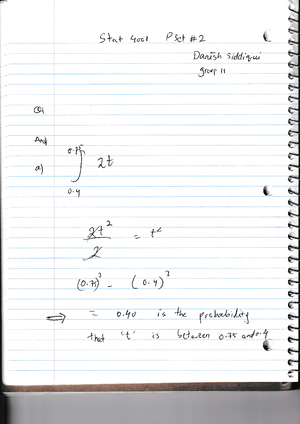 Stat 4001 Pset #2
Danish Siddiqui
group 11
Q1
And
a) 0.75 ∫ 0.4 2t
2t² / 2 = t²
(0.75)² - (0.4)²
⇒ = 0.40 is the probability
that 't' is between 0.75 and 0.4